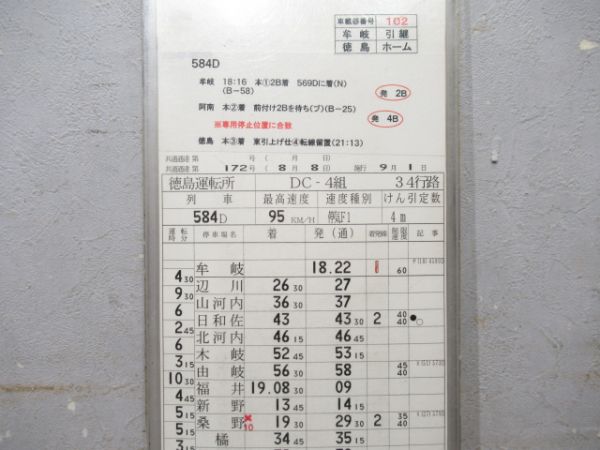 車載器番号 102
牟岐 引継
徳島 ホーム
584D
牟岐 18:16 本①2B着 569Dに着(N)
(B-58)
発 2B
阿南 本②着 前付け2Bを待ち(ブ)(B-25)
発 4B
※専用停止位置に合致
徳島 本③着 東引上げ仕④転線留置(21:13)
共通通達 第 号 ( 月 日)
共通通達 第 172号 ( 8月 8日) 施行 9月 1日
徳島運転所 DC-4組 34行路
列車 最高速度 速度種別 けん引定数
584D 95 KM/H 停気F1 4m
運転時分 停車場名 着 発(通) 着発線 制限速度 記事
牟岐 18.22 1 60
4 30
辺川 26 30 27
9 30
山河内 36 30 37
6
日和佐 43 43 30 2 40 40 ●○
2 45
北河内 46 15 46 45
6
木岐 52 45 53 15
3 15
由岐 56 30 58 45 40
10 30
福井 19.08 30 09
4 45
新野 13 45 14 15
5 15
桑野 ×10 19 30 29 30 2 35 40
5 15
橘 34 45 35 15
3